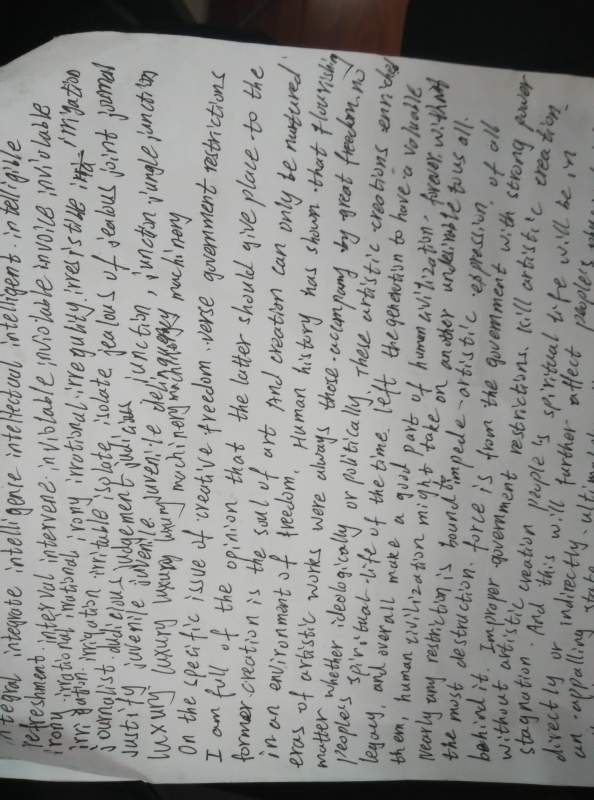 integral integrate intelligence intellectual intelligent intelligible
refreshment interval intervene inviolable inviolable invoice inviolable
irony irrational irrational irony irrational irregulity irresistible irrigation
irrigation irrigation irritable isolate isolate jealous of jealous joint journal
journalist judicious judgement judicious junction
justify juvenile juvenile juvenile delinquency, junction jungle junction
luxury luxury luxury luxury machinery machinery machinery
On the specific issue of creative freedom verse government restrictions
I am full of the opinion that the latter should give place to the
former creation is the soul of art And creation can only be nurtured
in an environment of freedom. Human history has shown that flourishing
eras of artistic works were always those accompany by great freedom. no
matter whether ideologically or politically These artistic creations enriched
people's spiritual life of the time. left the generation to have a valuable
legacy, and overall make a good part of human civilization. forever. without
them, human civilization might take on another undesirable to us all.
Nearly any restriction is bound to impede artistic expression. of all
the most destruction force is from the government with strong power
behind it. Improver government restrictions. kill artistic creation.
without artistic creation people's spiritual life will be in
stagnation. And this will further affect people's
directly or indirectly
an appalling state ultimately